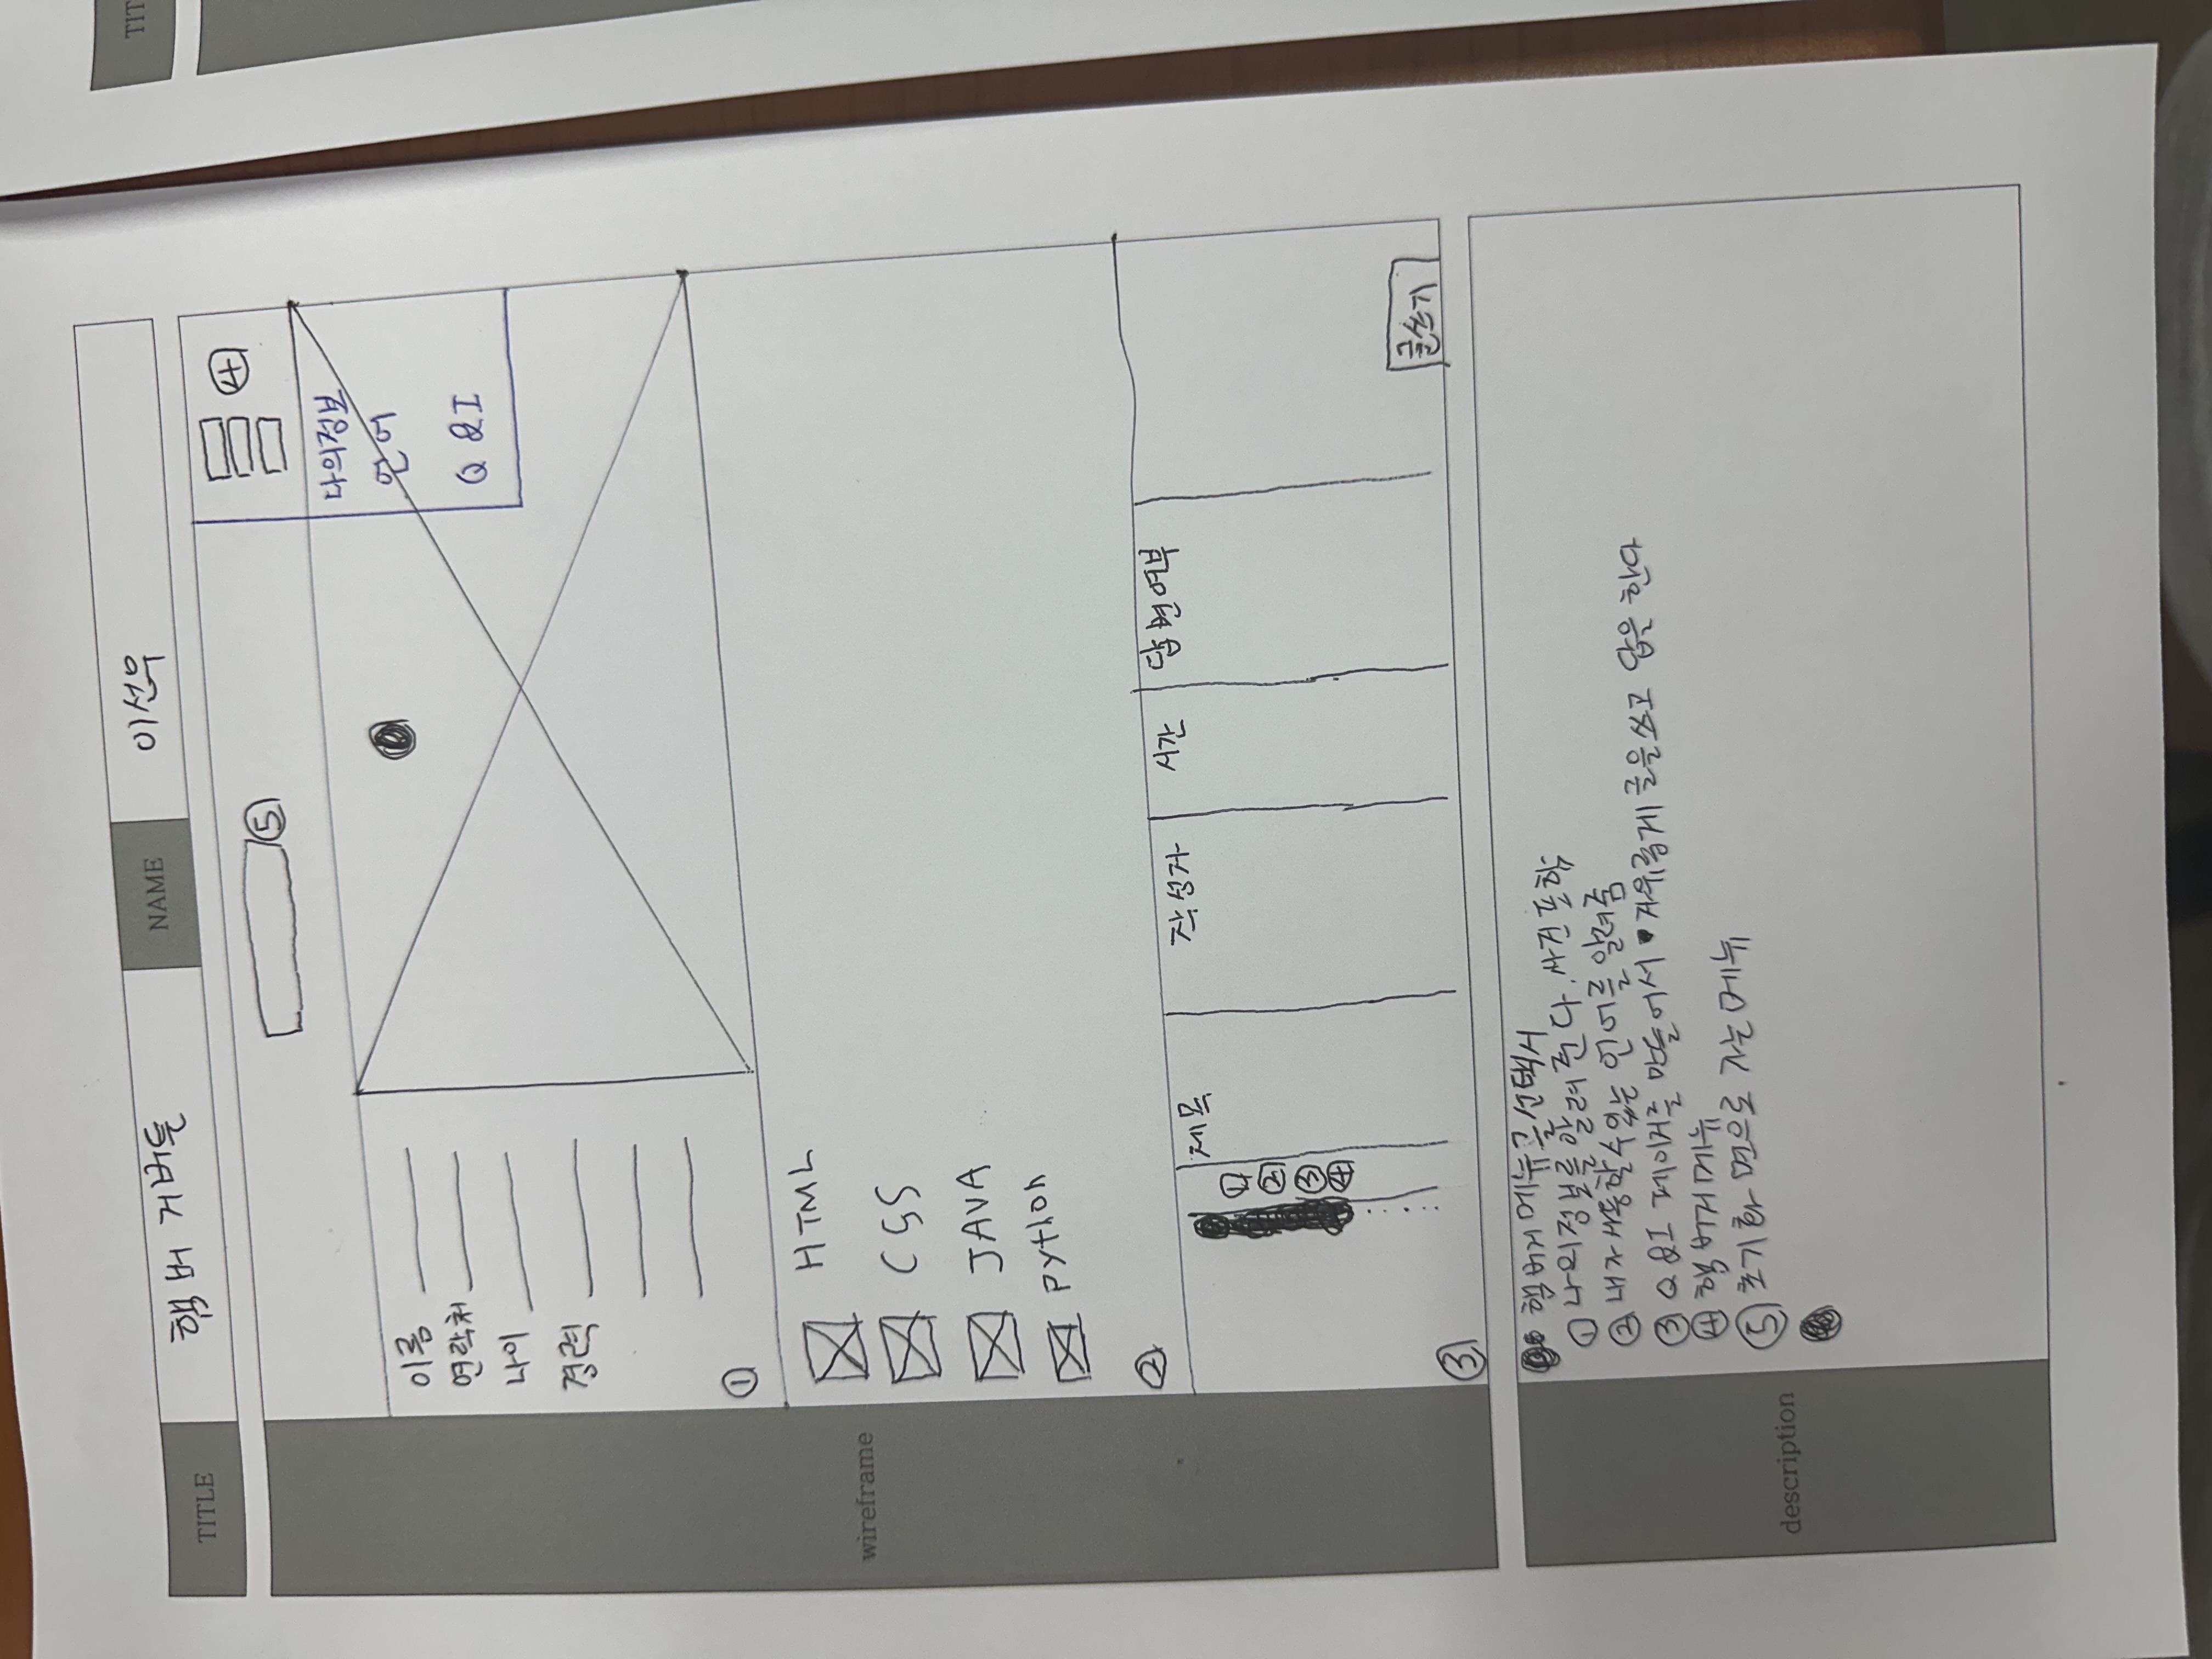 TITLE 햄버거버튼 NAME 이선우
TIT
⑤ ④
나의정보
언어
Q &I
이름
연락처
나이
경력
①
wireframe
HTML
CSS
JAVA
python
②
제목 작성자 시간 답변여부
①
②
③
④
글쓰기
③
description
햄버거 메뉴를 선택시
① 나의정보를 알려준다. 사진포함
② 내가 사용할수있는 언어를 알려줌
③ Q &I 페이지를 만들어서 자유롭게 글을쓰고 답을 한다
④ 햄버거메뉴
⑤ 초기화면으로 가는메뉴